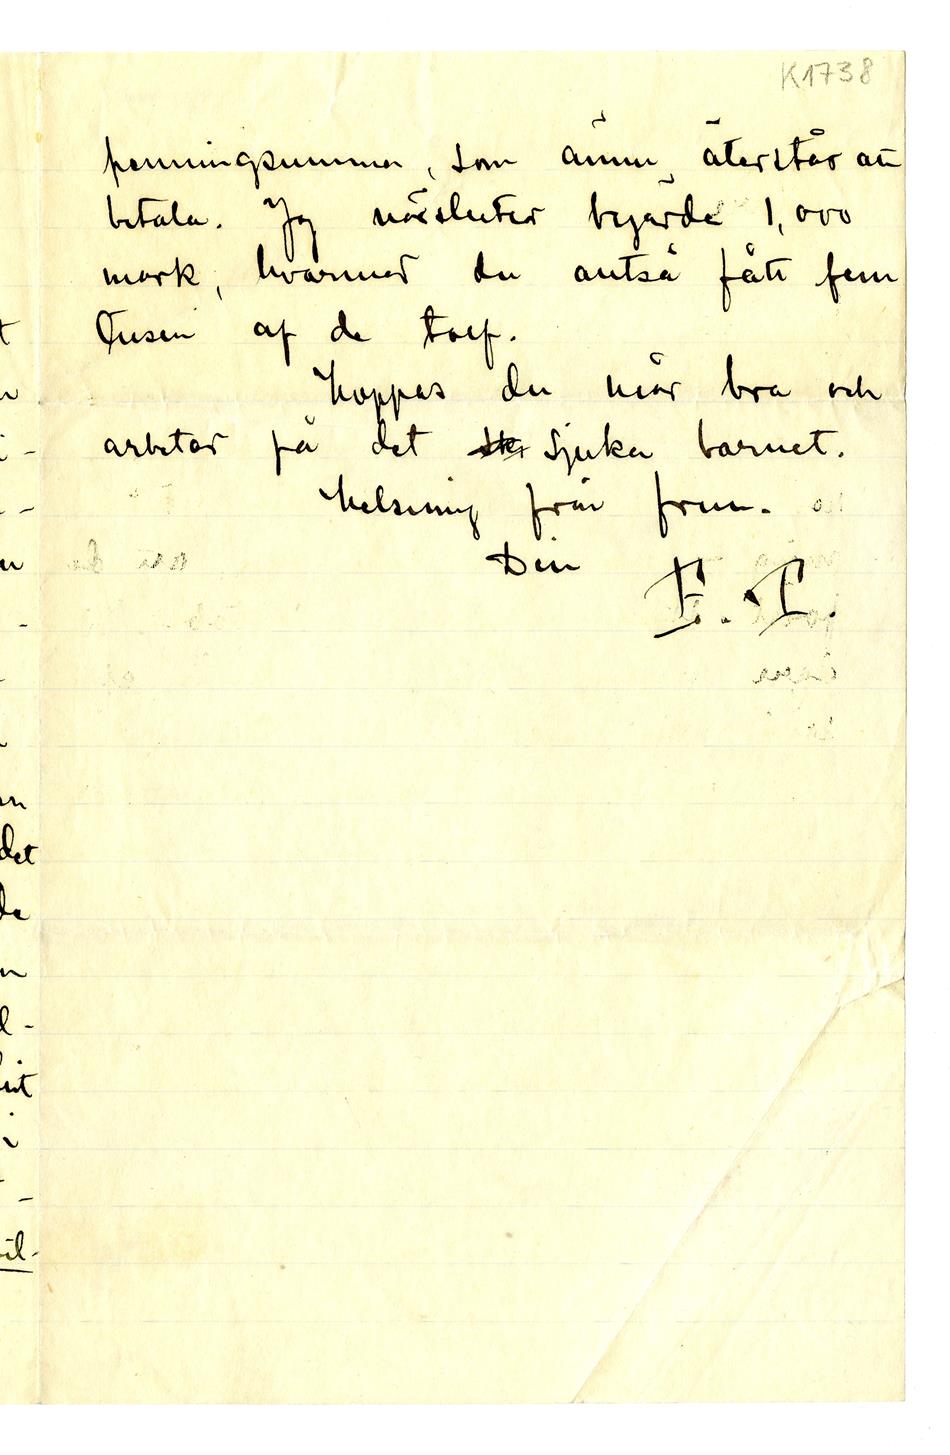 K1738
penningsumma, som ännu återstår att
betala. Jag närsluter begärda 1,000
mark, hvarmed du altså fått fem
tusen af de tolf.
Hoppas du mår bra och
arbetar på det sjuka barnet.
Helsning från frun.
Din
E. T.
det
de